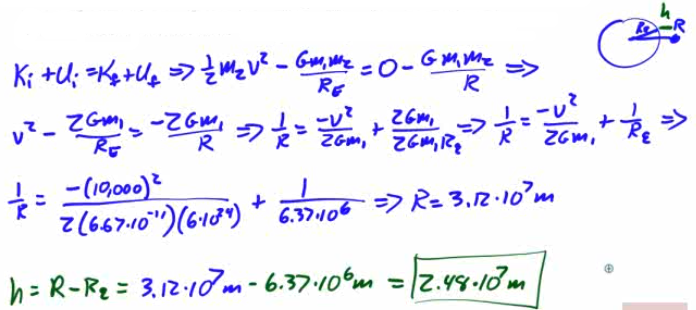 h
R_E R
K_i + U_i = K_f + U_f ⇒ 1/2 m_2 v^2 - Gm_1m_2/R_E = 0 - Gm_1m_2/R ⇒
v^2 - 2Gm_1/R_E = -2Gm_1/R ⇒ 1/R = -v^2/2Gm_1 + 2Gm_1/2Gm_1R_E ⇒ 1/R = -v^2/2Gm_1 + 1/R_E ⇒
1/R = -(10,000)^2/2(6.67·10^-11)(6·10^24) + 1/6.37·10^6 ⇒ R = 3.12·10^7 m
h = R - R_E = 3.12·10^7 m - 6.37·10^6 m = 2.48·10^7 m